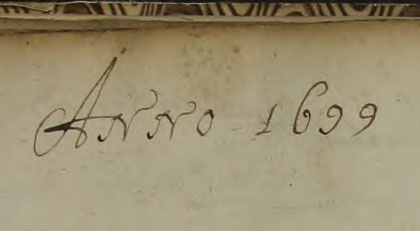 Anno 1699